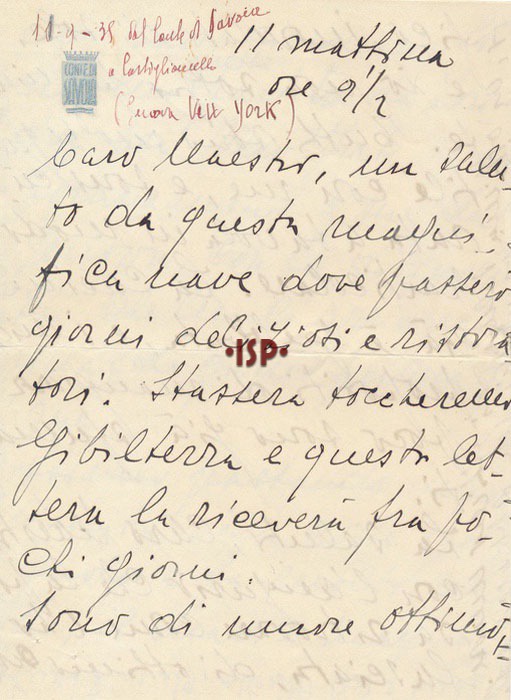 11-9-35 dal Conte di Savoia
a Castiglioncello
(Genova New York)
CONTE DI
SAVOIA
11 mattina
ore 9 1/2
Caro Maestro, un salu-
to da questa magni-
fica nave dove passerò
giorni deliziosi e ristora
tori. Stassera toccheremo
Gibilterra e questa let-
tera la riceverà fra po-
chi giorni.
Sono di umore ottimo,
·ISP·